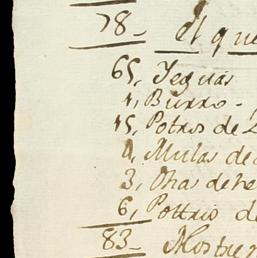 78- el que
65, Yeguas
1, Burro-
15, Potros de 2
4, Mulas de
3, Otras de he
6, Pottrio de
83- Mostre